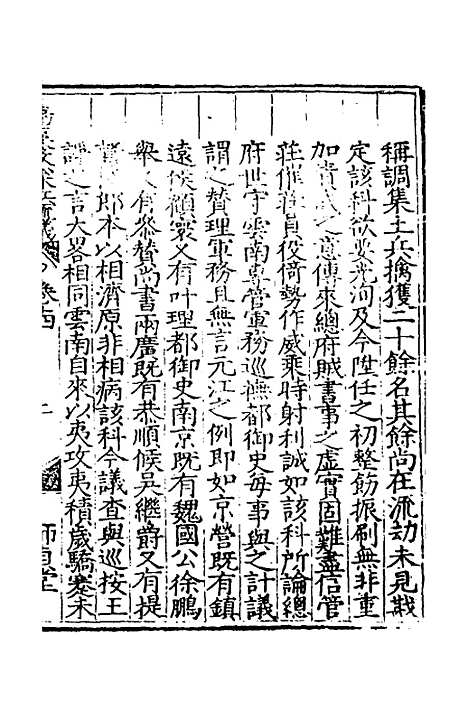 稱調集土兵擒獲二十餘名其餘尚在流劫未見戢
定該科欲要光洵及今陞任之初整飭振刷無非重
加責成之意傳來總府賊書事之虛實固難盡信管
莊催莊員役倚勢作威乘時射利誠如該科所論總
府世守雲南專管軍務巡撫都御史每事與之計議
謂之贊理軍務且無言元江之例即如京營既有鎮
遠侯顧寰又有叶理都御史南京既有魏國公徐鵬
舉又有叅贊尚書兩廣既有恭順候吳繼爵又有提
督 郎本以相濟原非相病該科今議查與巡按王
諍之言大畧相同雲南自來以夷攻夷積歲驕蹇未
卷十四
師自堂